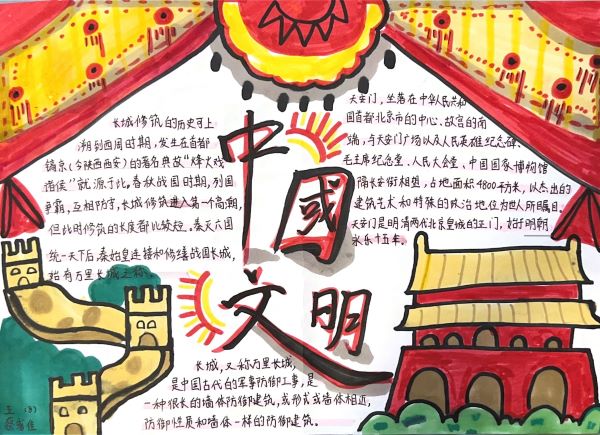 长城修筑的历史可上
溯到西周时期,发生在首都
镐京(今陕西西安)的著名典故"烽火戏
诸侯"就源于此,春秋战国时期,列国
争霸,互相防守,长城修筑进入第一个高潮,
但此时修筑的长度都比较短。秦灭六国
统一天下后,秦始皇连接和修缮战国长城,
始有万里长城之称。
中國
文明
天安门,坐落在中华人民共和
国首都北京市的中心、故宫的南
端,与天安门广场以及人民英雄纪念碑、
毛主席纪念堂、人民大会堂、中国国家博物馆
隔长安街相望,占地面积4800平方米,以杰出的
建筑艺术和特殊的政治地位为世人所瞩目。
天安门是明清两代北京皇城的正门,始于明朝
永乐十五年。
长城,又称万里长城,
是中国古代的军事防御工事,是
一种很长的墙体防御建筑,或形式或墙体相近,
防御性质和墙体一样的防御建筑。
五(3)